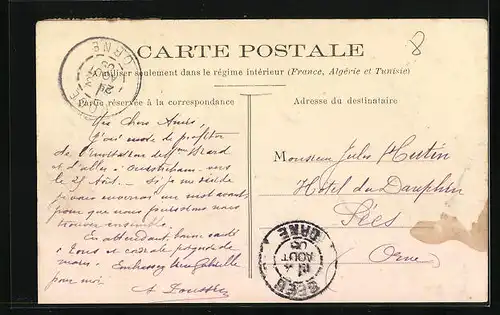 8
CARTE POSTALE
A utiliser seulement dans le régime intérieur (France, Algérie et Tunisie)
Partie réservée à la correspondance
Adresse du destinataire
ORNE
Mes Chers Amis,
J'ai de profiter
de l'invitation de Mme
et d'aller à Ouistreham vers
le 25 Août. Si je me décide
je vous enverrai un mot avant
pour que nous puissions nous
trouver ensemble.
En attendant, bonne santé
à tous et cordiale poignée de
mains. Embrassez Gabrielle
pour moi
A.
Monsieur Jules Hutin
Hôtel du Dauphin
Sées
Orne
AOUT
ORNE